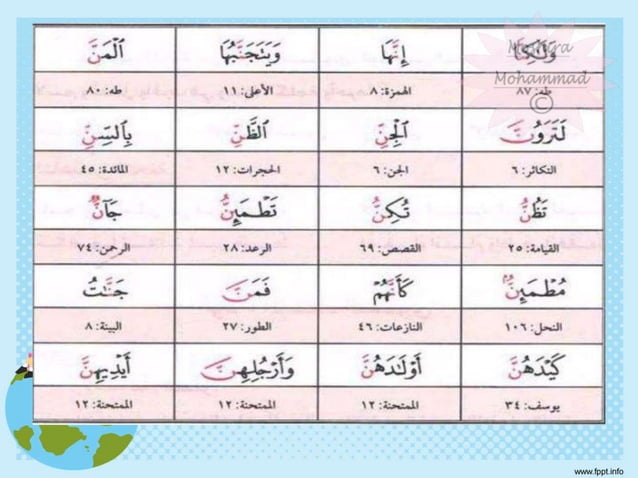 وَلَٰكِنَّا إِنَّهَا وَيَتَجَنَّبُهَا ٱلْمَنَّ
طه: ٨٧ الهمزة: ٨ الأعلى: ١١ طه: ٨٠
لَتَرَوُنَّ ٱلْجِنِّ ٱلظَّنِّ بِٱلسِّنِّ
التكاثر: ٦ الجن: ٦ الحجرات: ١٢ المائدة: ٤٥
تَظُنُّ تُكِنُّ تَطْمَئِنُّ جَآنٌّ
القيامة: ٢٥ القصص: ٦٩ الرعد: ٢٨ الرحمن: ٧٤
مُطْمَئِنٌّ كَأَنَّهُمْ فَمَنَّ جَنَّٰتُ
النحل: ١٠٦ النازعات: ٤٦ الطور: ٢٧ البينة: ٨
كَيْدَهُنَّ أَوْلَٰدَهُنَّ وَأَرْجُلِهِنَّ أَيْدِيهِنَّ
يوسف: ٣٤ الممتحنة: ١٢ الممتحنة: ١٢ الممتحنة: ١٢
Mohammad
©
www.fppt.info